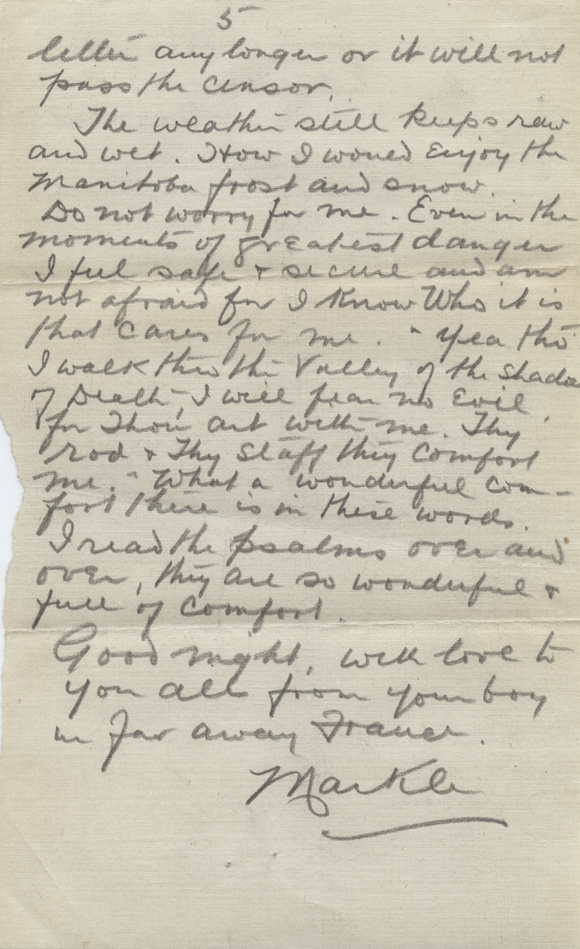 5
letter any longer or it will not
pass the censor.
The weather still keeps raw
and wet. How I would Enjoy the
Manitoba frost and snow.
Do not worry for me. Even in the
moments of greatest danger
I feel safe & secure and am
not afraid for I Know Who it is
that Cares for me. "Yea tho'
I walk thro the Valley of the Shadow
of Death, I will fear no Evil,
for Thou art with me. Thy
rod & Thy Staff they Comfort
me." What a wonderful com-
fort there is in these words.
I read the psalms over and
over, they are so wonderful &
full of Comfort.
Good night, with love to
you all from your boy
in far away France.
Markle